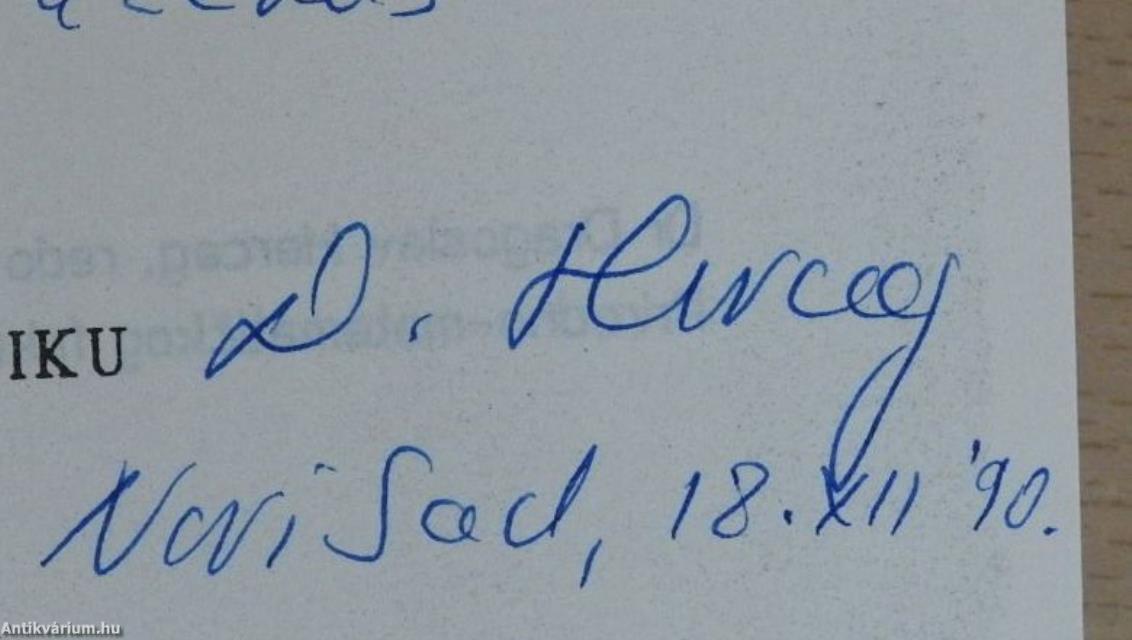 IKU D. Herceg
Novi Sad, 18. XII '90.
Antikvárium.hu